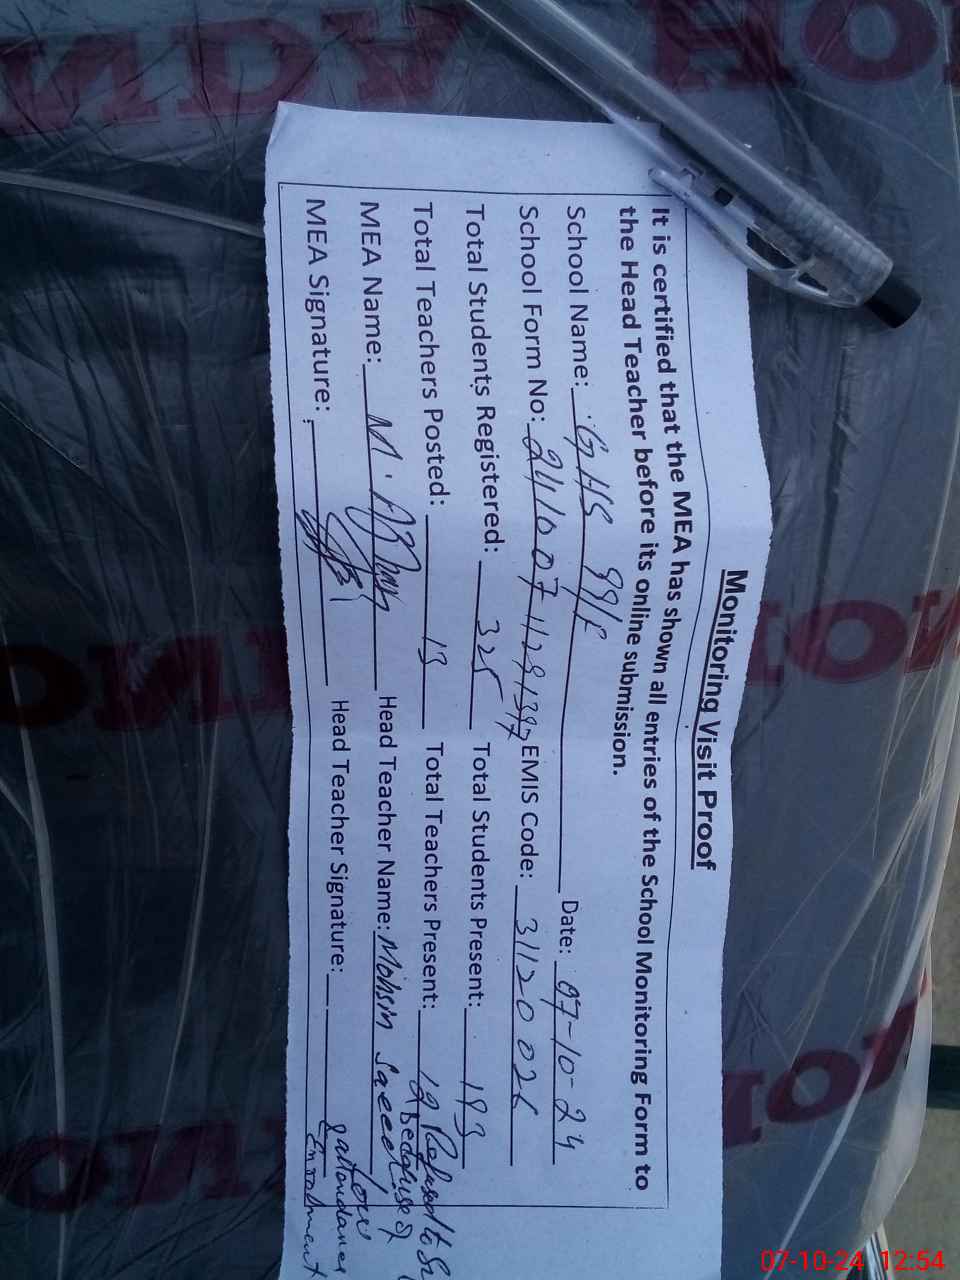 Monitoring Visit Proof
It is certified that the MEA has shown all entries of the School Monitoring Form to
the Head Teacher before its online submission.
School Name: GHS 99/F Date: 07-10-24
School Form No: EMIS Code:
Total Students Registered: 325 Total Students Present: 193
Total Teachers Posted: 13 Total Teachers Present: 12 Refused to
MEA Name: Head Teacher Name: Mohsin Saeed Because of
MEA Signature: Head Teacher Signature: low
attendance
Enrolment
HONDA
07-10-24 12:54